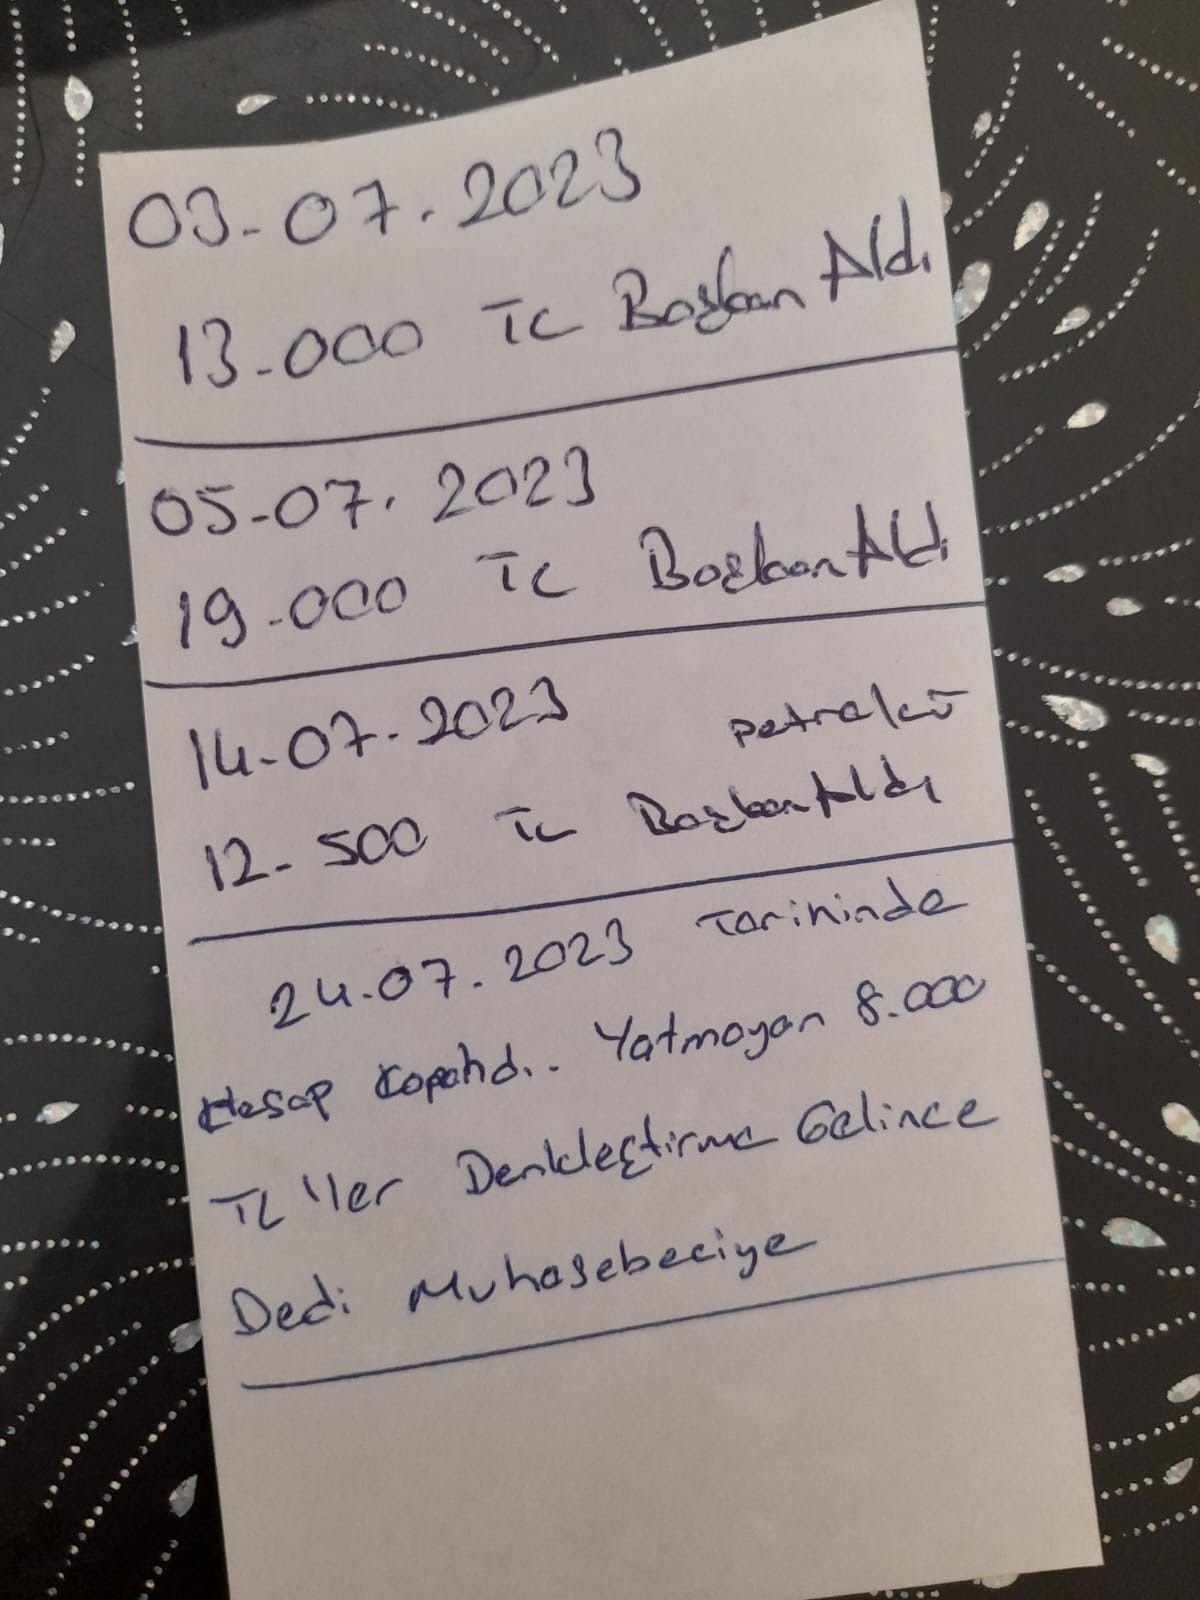 03-07.2023
13-000 TL Başkan Aldı
05-07.2023
19-000 TL Başkan Aldı
14-07-2023
12-500 TL Başkan Aldı
24.07.2023 Tarihinde
Hesap Kapandı.. Yatmayan 8.000
TL'ler Denkleştirme Gelince
Dedi Muhasebeciye